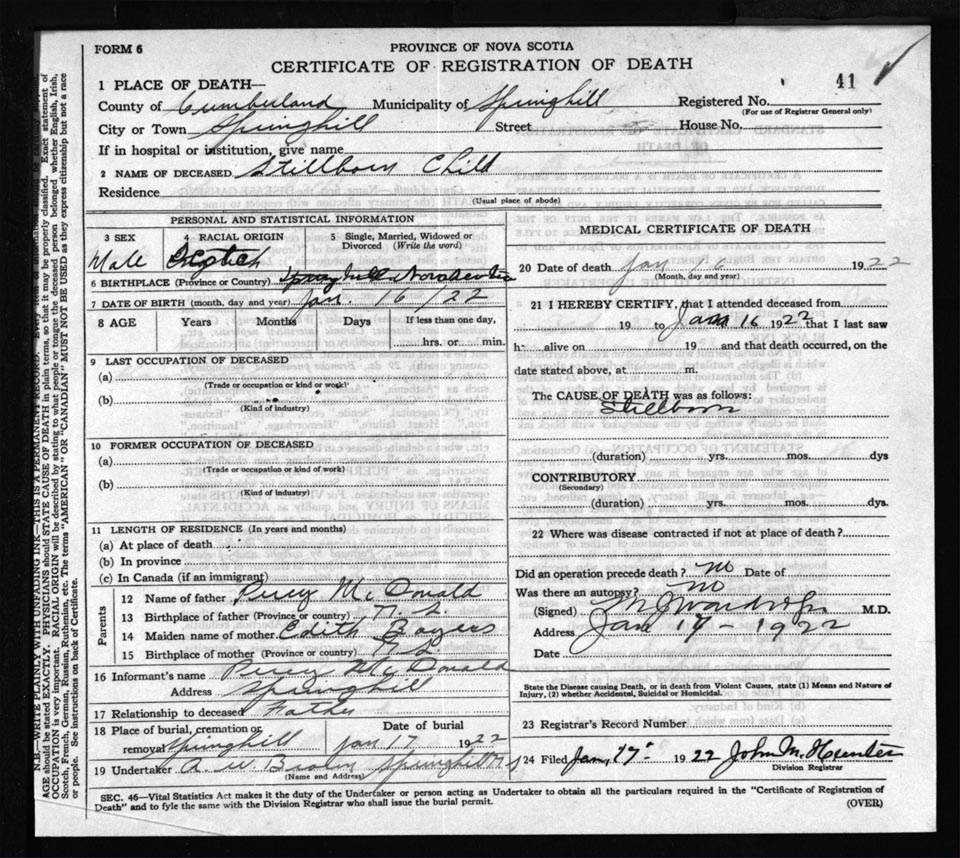 FORM 6
PROVINCE OF NOVA SCOTIA
CERTIFICATE OF REGISTRATION OF DEATH
41
1 PLACE OF DEATH—
County of Cumberland Municipality of Springhill Registered No.
(For use of Registrar General only)
City or Town Springhill Street House No.
If in hospital or institution, give name
2 NAME OF DECEASED Stillborn Child
Residence
(Usual place of abode)
PERSONAL AND STATISTICAL INFORMATION
3 SEX 4 RACIAL ORIGIN 5 Single, Married, Widowed or Divorced (Write the word)
Male Scotch
6 BIRTHPLACE (Province or Country) Springhill Nova Scotia
7 DATE OF BIRTH (month, day and year) Jan. 16/22
8 AGE Years Months Days If less than one day,
hrs. or min.
9 LAST OCCUPATION OF DECEASED
(a)
(Trade or occupation or kind of work)
(b)
(Kind of industry)
10 FORMER OCCUPATION OF DECEASED
(a)
(Trade or occupation or kind of work)
(b)
(Kind of industry)
11 LENGTH OF RESIDENCE (In years and months)
(a) At place of death
(b) In province
(c) In Canada (if an immigrant)
Parents
12 Name of father Percy McDonald
13 Birthplace of father (Province or country) N.S.
14 Maiden name of mother Edith
15 Birthplace of mother (Province or country) N.S.
16 Informant's name Percy McDonald
Address Springhill
17 Relationship to deceased Father
18 Place of burial, cremation or removal Springhill Date of burial Jan 17 1922
19 Undertaker A. W. Springhill N S
(Name and Address)
MEDICAL CERTIFICATE OF DEATH
20 Date of death Jan 16 1922
(Month, day and year)
21 I HEREBY CERTIFY, that I attended deceased from
19 to Jan 16 1922 that I last saw
h alive on 19 and that death occurred, on the
date stated above, at m.
The CAUSE OF DEATH was as follows:
Stillborn
(duration) yrs. mos. dys
CONTRIBUTORY
(Secondary)
(duration) yrs. mos. dys.
22 Where was disease contracted if not at place of death?
Did an operation precede death? no Date of
Was there an autopsy? no
(Signed) M.D.
Address Jan 17 - 1922
Date
State the Disease causing Death, or in death from Violent Causes, state (1) Means and Nature of Injury, (2) whether Accidental, Suicidal or Homicidal.
23 Registrar's Record Number
24 Filed Jan, 17 1922 John M. Hunter
Division Registrar
SEC. 46—Vital Statistics Act makes it the duty of the Undertaker or person acting as Undertaker to obtain all the particulars required in the "Certificate of Registration of
Death" and to fyle the same with the Division Registrar who shall issue the burial permit.
(OVER)
N.B.—WRITE PLAINLY WITH UNFADING INK—THIS IS A PERMANENT RECORD.
AGE should be stated EXACTLY. PHYSICIANS should STATE CAUSE OF DEATH in plain terms, so that it may be properly classified. Exact statement of
OCCUPATION is very important. RACIAL ORIGIN will be described by stating to what people or tongue the deceased person belonged whether English, Irish,
Scotch, French, German, Russian, Ruthenian, etc. The terms "AMERICAN" OR "CANADIAN" MUST NOT BE USED as they express citizenship but not a race
or people. See instructions on back of Certificate.